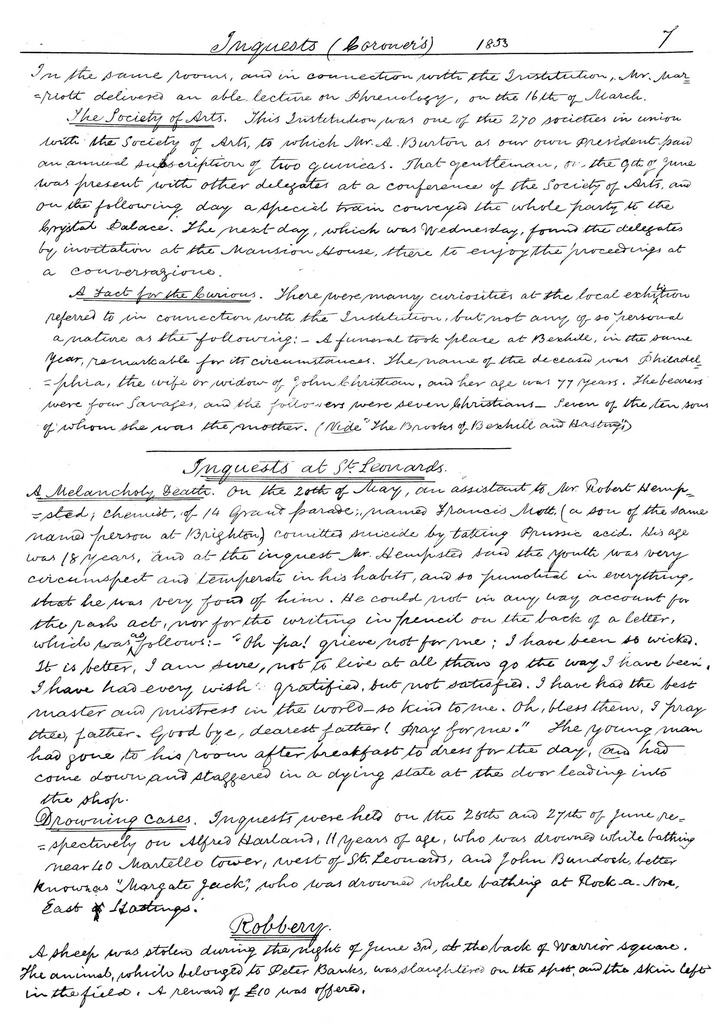 Inquests (Coroner's) 1853 7
In the same rooms, and in connection with the Institution, Mr. Mar=
=riott delivered an able lecture on Phrenology, on the 16th of March.
The Society of Arts. This Institution, was one of the 270 societies in union
with the Society of Arts, to which Mr. A. Burton as our own President paid
an annual subscription of two guineas. That gentleman, on the 9th of June
was present with other delegates at a conference of the Society of Arts, and
on the following day a special train conveyed the whole party to the
Crystal Palace. The next day, which was Wednesday, found the delegates
by invitation at the Mansion House, there to enjoy the proceedings at
a conversazione.
A Fact for the Curious. There were many curiosities at the local exhibition
referred to in connection with the Institution, but not any of so personal
a nature as the following:- A funeral took place at Bexhill, in the same
year, remarkable for its circumstances. The name of the deceased was Philadel=
=phia, the wife or widow of John Christian, and her age was 77 years. The bearers
were four Savages, and the followers were seven Christians - Seven of the ten sons
of whom she was the mother. (Vide "The Brooks of Bexhill and Hastings")
Inquests at St. Leonards.
A Melancholy Death. On the 20th of May, an assistant to Mr. Robert Hemp=
=sted, chemist, of 14 Grand parade, named Francis Mott (a son of the same
named person at Brighton) comitted suicide by taking Prussic acid. His age
was 18 years, and at the inquest Mr. Hempsted said the youth was very
circumspect and temperate in his habits, and so punctual in everything,
that he was very fond of him. He could not in any way account for
the rash act, nor for the writing in pencil on the back of a letter,
which was as follows:- "Oh pa! grieve not for me; I have been so wicked.
It is better, I am sure, not to live at all than go the way I have been.
I have had every wish gratified, but not satisfied. I have had the best
master and mistress in the world - so kind to me. Oh, bless them, I pray
thee, father. Good bye, dearest father! Pray for me." The young man
had gone to his room after breakfast to dress for the day, and had
come down and staggered in a dying state at the door leading into
the shop.
Drowning cases. Inquests were held on the 25th and 27th of June, re=
=spectively on Alfred Harland, 11 years of age, who was drowned while bathing
near 40 Martello tower, west of St. Leonards, and John Bundock, better
known as "Margate Jack," who was drowned while bathing at Rock-a-Nore,
East Hastings.
Robbery.
A sheep was stolen during the night of June 3rd, at the back of Warrior square.
The animal, which belonged to Peter Banks, was slaughtered on the spot, and the skin left
in the field. A reward of £10 was offered.